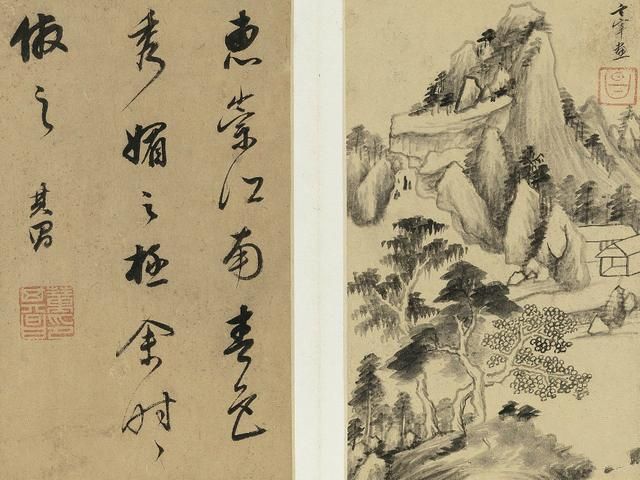 惠崇江南春色
秀媚之極余時〻
倣之
其昌
玄宰畫